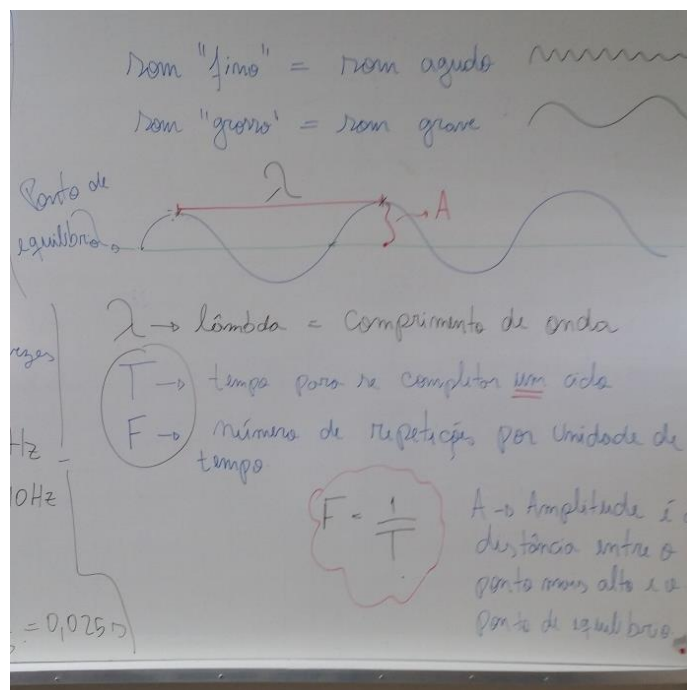 som "fino" = som agudo
som "grosso" = som grave
λ
Ponto de
equilíbrio
A
λ → lâmbda = comprimento de onda
T → tempo para se completar um ciclo
F → número de repetições por unidade de
tempo
Hz
10Hz
F = 1/T
A → Amplitude é a
distância entre o
ponto mais alto e o
ponto de equilíbrio.
= 0,025s